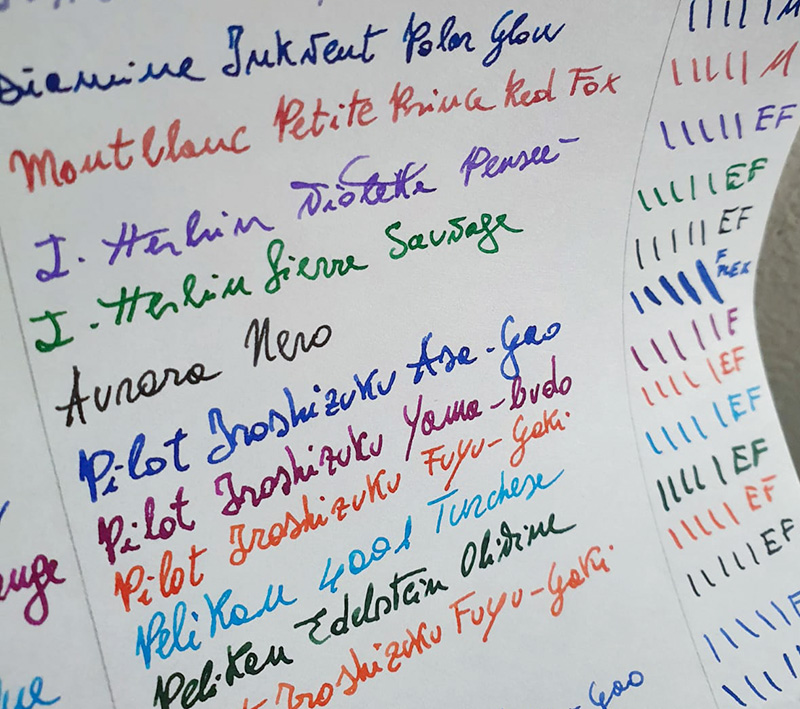 Diamine Inkvent Polar Glow M
Montblanc Petite Prince Red Fox M
J. Herbin Violette Pensée EF
J. Herbin Lierre Sauvage EF
Aurora Nero EF
Pilot Iroshizuku Asa-Gao F FLEX
Pilot Iroshizuku Yama-budo F
Pilot Iroshizuku Fuyu-Gaki EF
Pelikan 4001 Turchese EF
Pelikan Edelstein Olivine EF
Iroshizuku Fuyu-Gaki EF
EF
-Gao EF